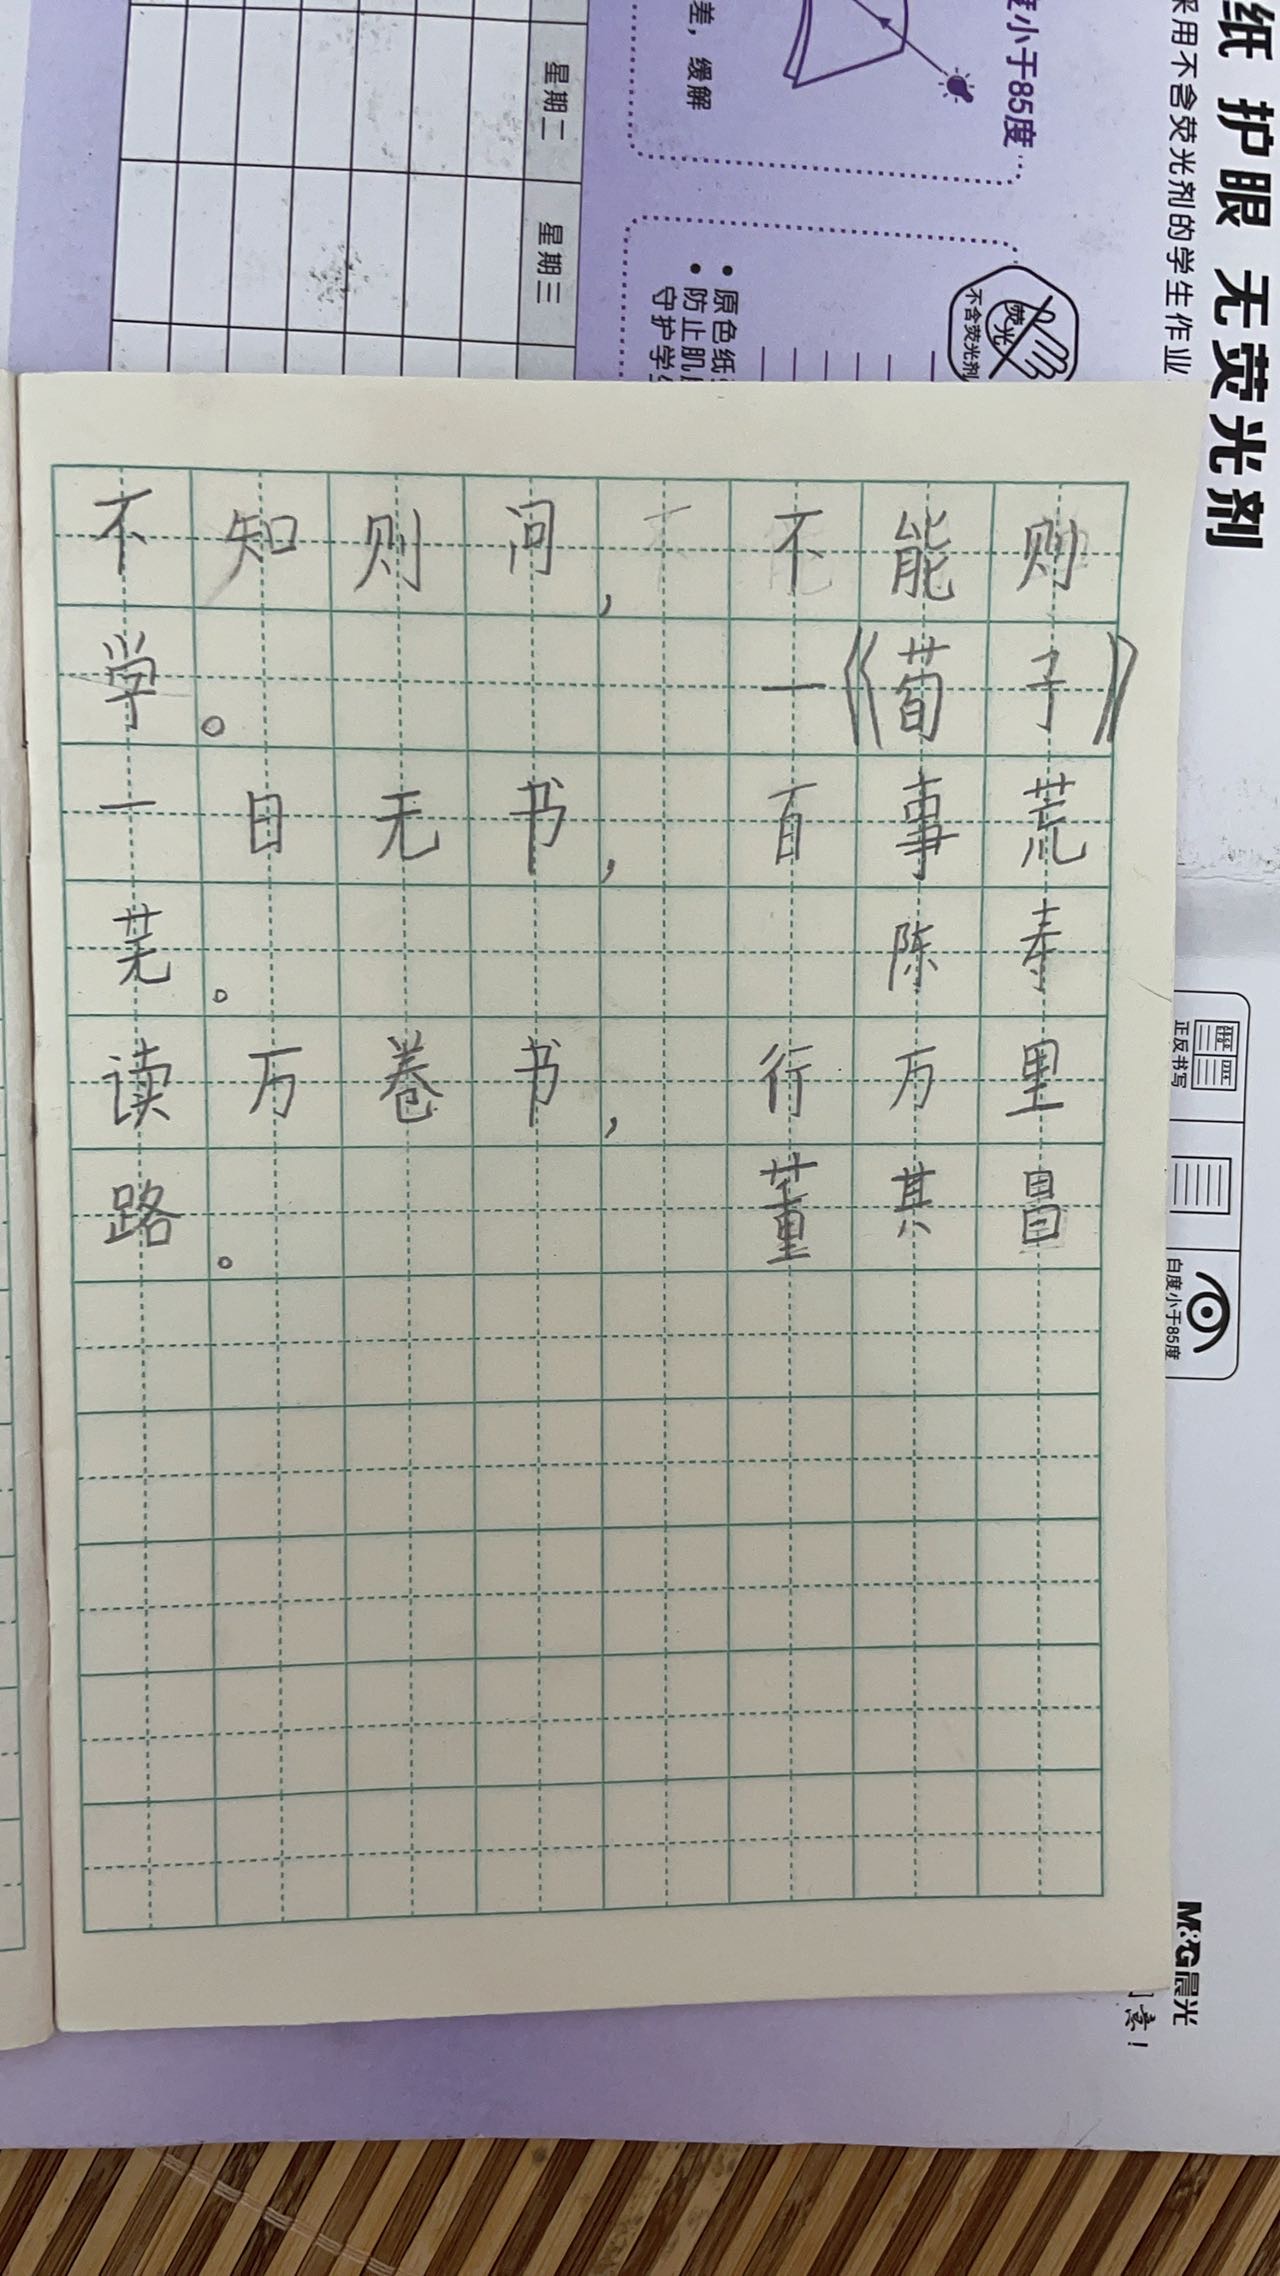 纸 护眼 无荧光剂
采用不含荧光剂的学生作业
度小于85度
差，缓解
星期二
星期三
荧光
不含荧光剂
• 原色纸
• 防止肌
守护学生
不知则问，不能则
学。 一《荀子》
一日无书，百事荒
芜。 陈寿
读万卷书，行万里
路。 董其昌
正反书写
白度小于85度
M&G晨光